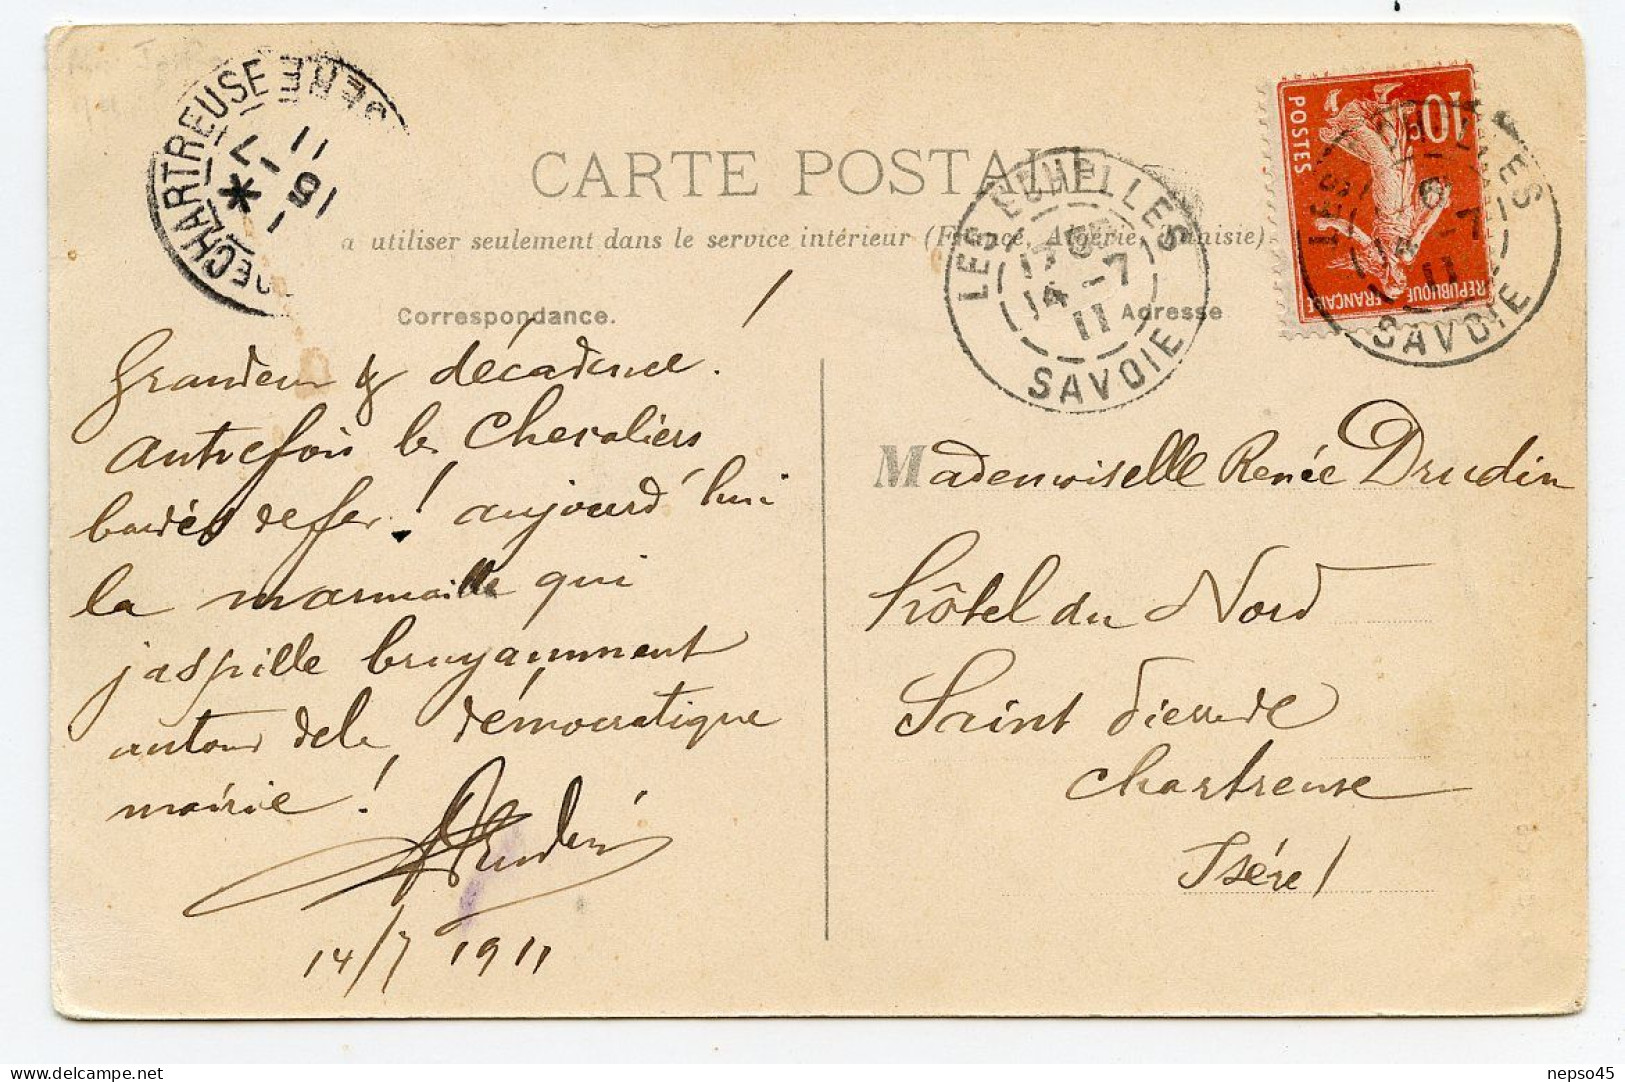 CARTE POSTALE
a utiliser seulement dans le service intérieur (France, Algérie, Tunisie)
Correspondance.
Grandeur & décadence !
autrefois les Chevaliers
bardés de fer ! aujourd'hui
la marmaille qui
jaspille bruyamment
autour de la démocratique
mairie !
Drudin
14/7 1911
Adresse
Mademoiselle Renée Drudin
hôtel du Nord
Saint Pierre de
Chartreuse
Isère
LES ECHELLES
14 -7
11
SAVOIE
LES ECHELLES
14 -7
11
SAVOIE
10c
POSTES
REPUBLIQUE FRANCAISE
DE CHARTREUSE ISERE
15 -7
11
delcampe.net
nepso45